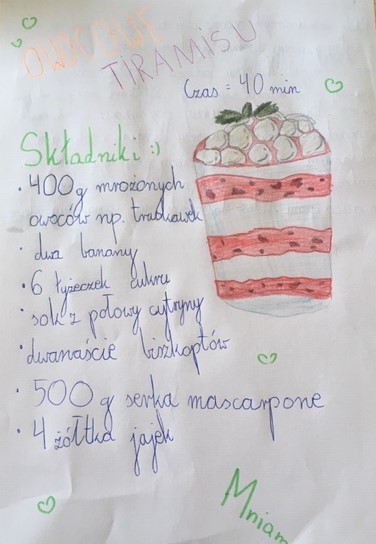 OWOCOWE
TIRAMISU
Czas = 40 min
Składniki :)
• 400g mrożonych
owoców np. truskawek
• dwa banany
• 6 łyżeczek cukru
• sok z połowy cytryny
• dwanaście biszkoptów
• 500 g serka mascarpone
• 4 żółtka jajek
Mniam